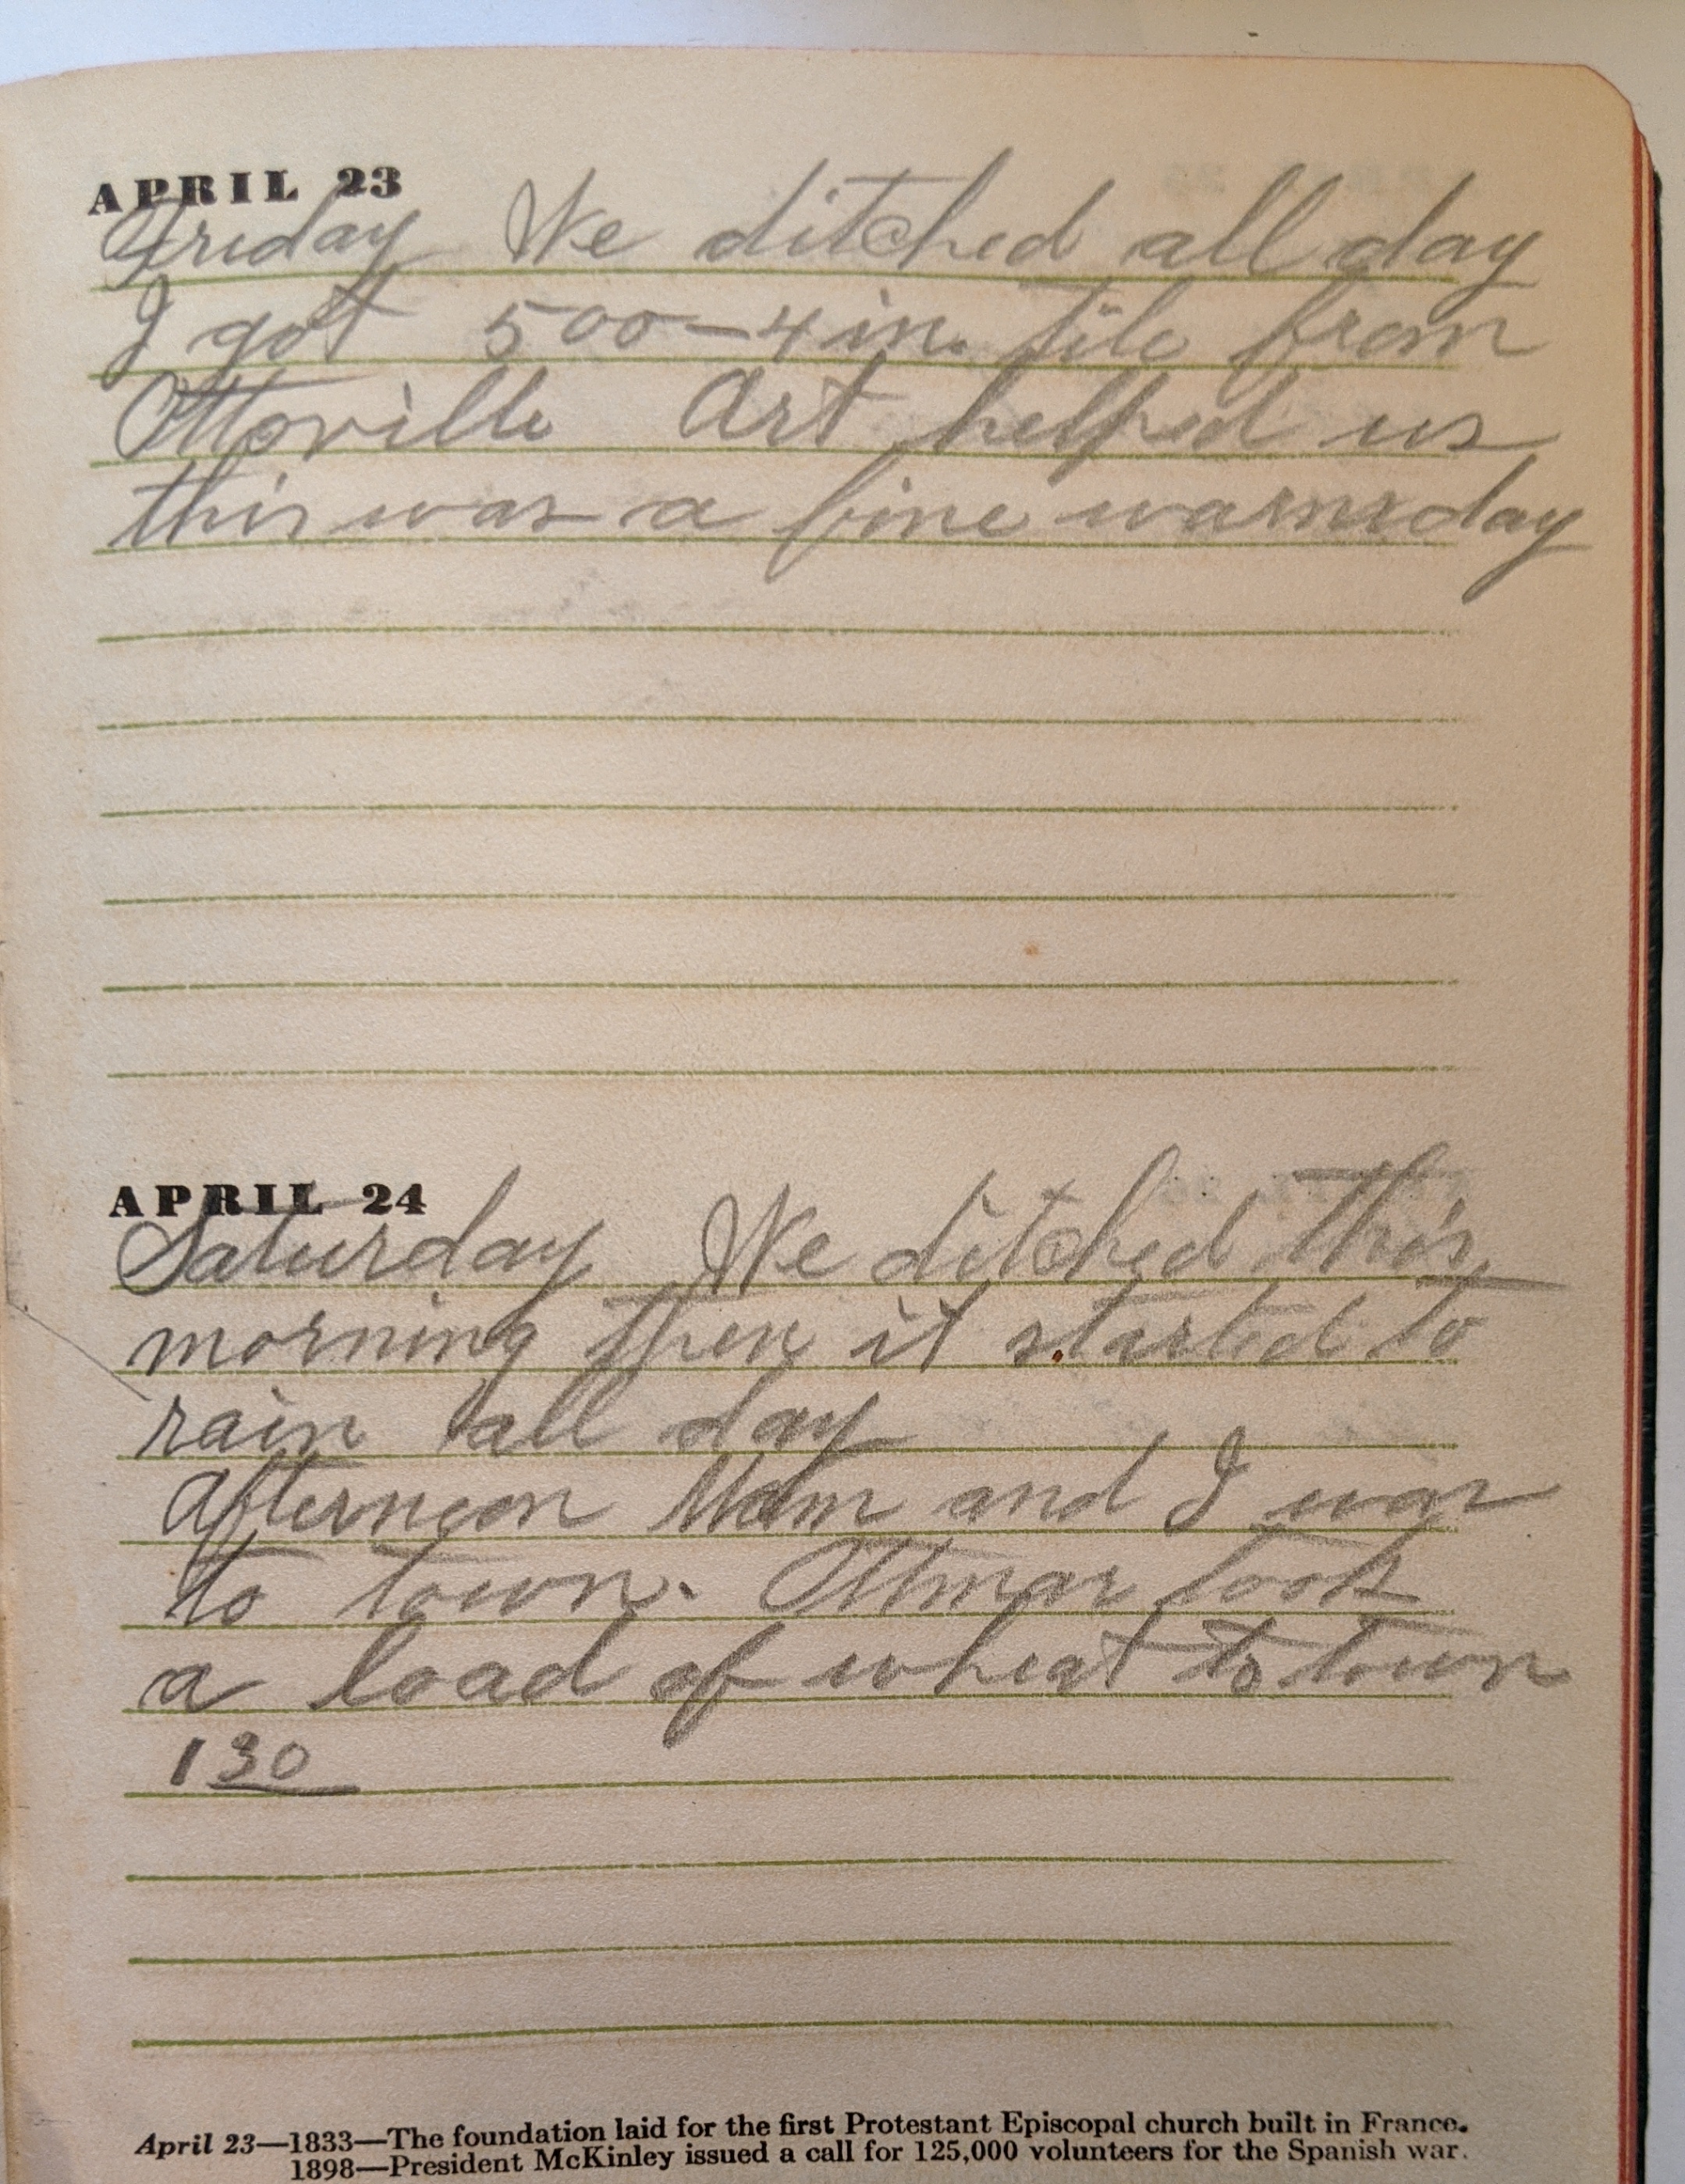 APRIL 23
Friday We ditched all day
I got 500-4 in. tile from
Ottoville Art helped us
this was a fine warm day
APRIL 24
Saturday We ditched this
morning then it started to
rain all day
Afternoon Mom and I was
to town. Ottmar took
a load of wheat to town
130
April 23—1833—The foundation laid for the first Protestant Episcopal church built in France.
1898—President McKinley issued a call for 125,000 volunteers for the Spanish war.